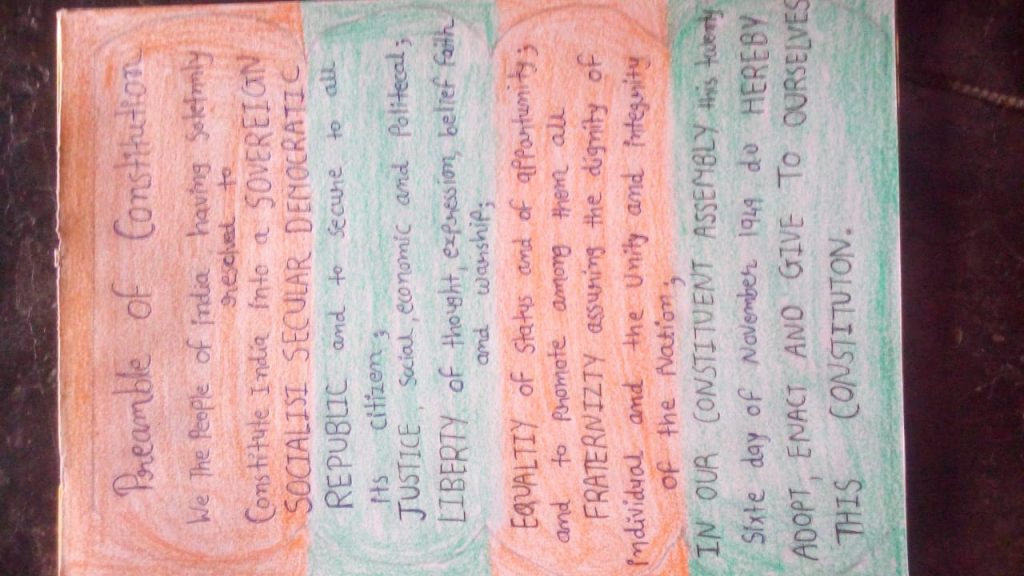 Preamble of Constitution
We The People of india having solemnly
resolved to
Constitute India into a SOVEREIGN
SOCIALISI SECULAR DEMOCRATIC
REPUBLIC and to secure to all
its citizen;
JUSTICE, social, economic and Politecal;
LIBERTY of thought, expression, belief faith
and warship;
EQUALTIY of Status and of apportunity;
and to Promote among them all
FRATERNIZIY assuring the dignity of
individual and the Unity and integrity
of the Nation;
IN OUR CONSTITUENT ASSEMBLY this twenty
Sixte day of November 1949 do HEREBY
ADOPT, ENACT AND GIVE TO OURSELVES
THIS CONSTITUTON.